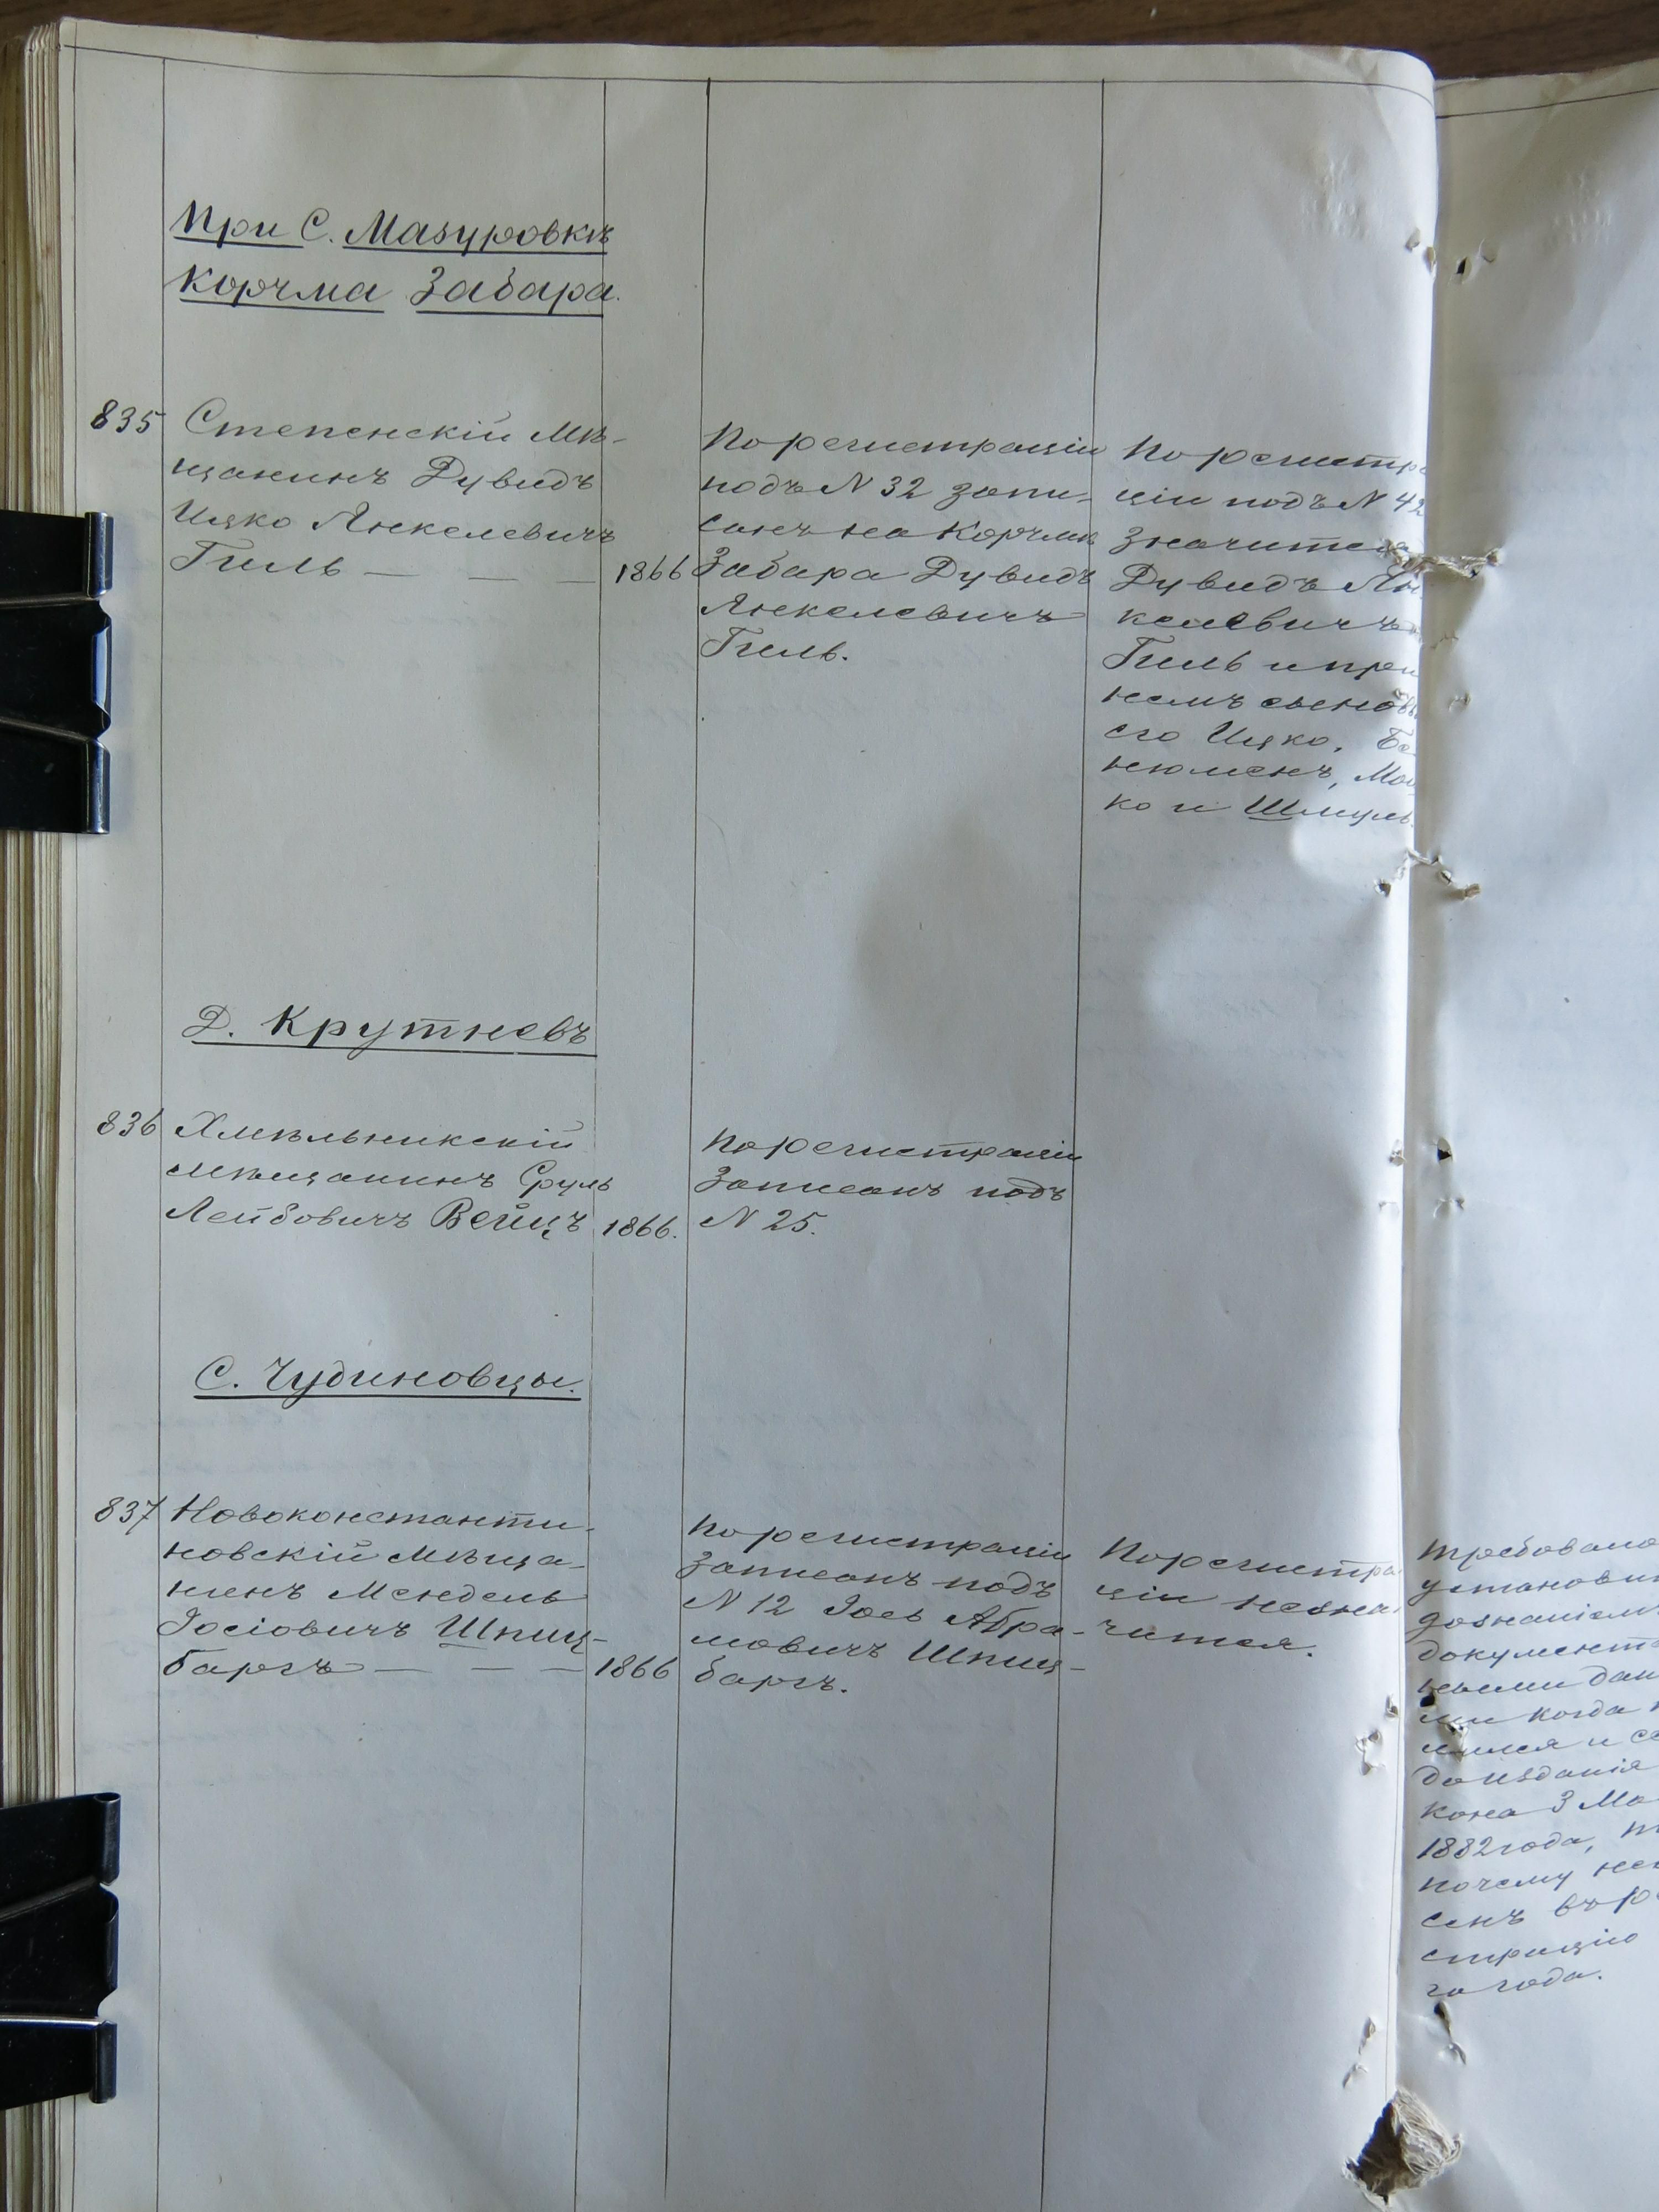 При С. Мазуровкѣ
Корчма Забара.
835
Степенскій Мѣ-
щанинъ Дувидъ
Ицко Янкелевичъ
Гиль — — —
1866
По регистраціи
подъ N 32 запи-
санъ на Корчмѣ
Забара Дувидъ
Янкелевичъ
Гиль.
По регистра
ціи подъ N 42
значится
Дувидъ Ян
келевичъ
Гиль и при
немъ сыновь
его Ицко, Бе
нюменъ, Мош
ко и Шмуль.
Д. Крутневъ
836
Хмѣльникскій
мѣщанинъ Сруль
Лейбовичъ Вейцъ
1866.
По регистраціи
Записанъ подъ
N 25.
С. Чудиновцы.
837
Новоконстанти-
новскій мѣща-
нинъ Мендель
Іосіовичъ Шпиц-
баргъ — — —
1866
По регистраціи
записанъ подъ
N 12 Іось Абра-
мовичъ Шпиц-
баргъ.
По регистра
ціи незна
чится.
требовало
установит
дознаніемъ
документ
ными дан
ми когда
лился и
до изданія
кона 3 Ма
1882 года,
почему нев
сенъ въ р
страцію
го года.